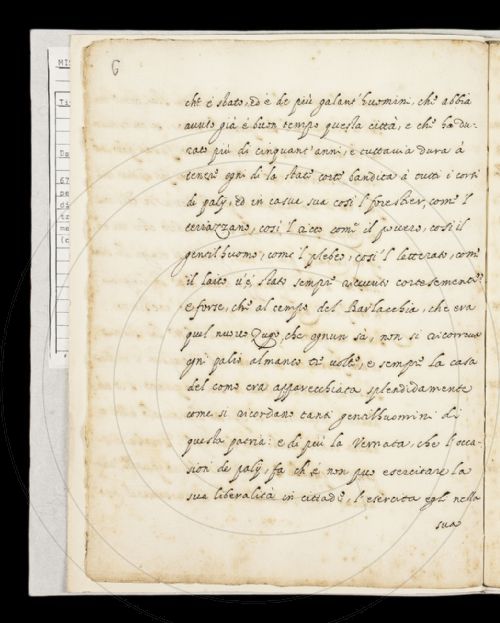 6
che è stato, ed è de più galant' huomini, che abbia
avuto già è buon tempo questa città, e che ha du-
rato più di cinquant' anni, e tuttavia dura à
tenere ogni di la stat. corte bandita à tutti i corti
di palij, ed in casa sua così 'l forestier, come 'l
terrazzano, così 'l ricco come il povero, così il
gentilhuomo, come 'l plebeo, così 'l letterato, come
il laico v'è stato sempre ricevuto cortesemente
e forse, che al tempo del Barlacchia, che era
quel nuovo Zugo, che ognun sà, non si ricorreva
ogni palio almanco tre volte, e sempre la casa
del como era apparecchiata splendidamente
come si ricordano tanti gentilhuomini di
questa patria: e di più la Vernata, che l'occa-
sion de palij, fà ch'è non può esercitare la
sua liberalità in cittade, l'esercita egli nella
sua